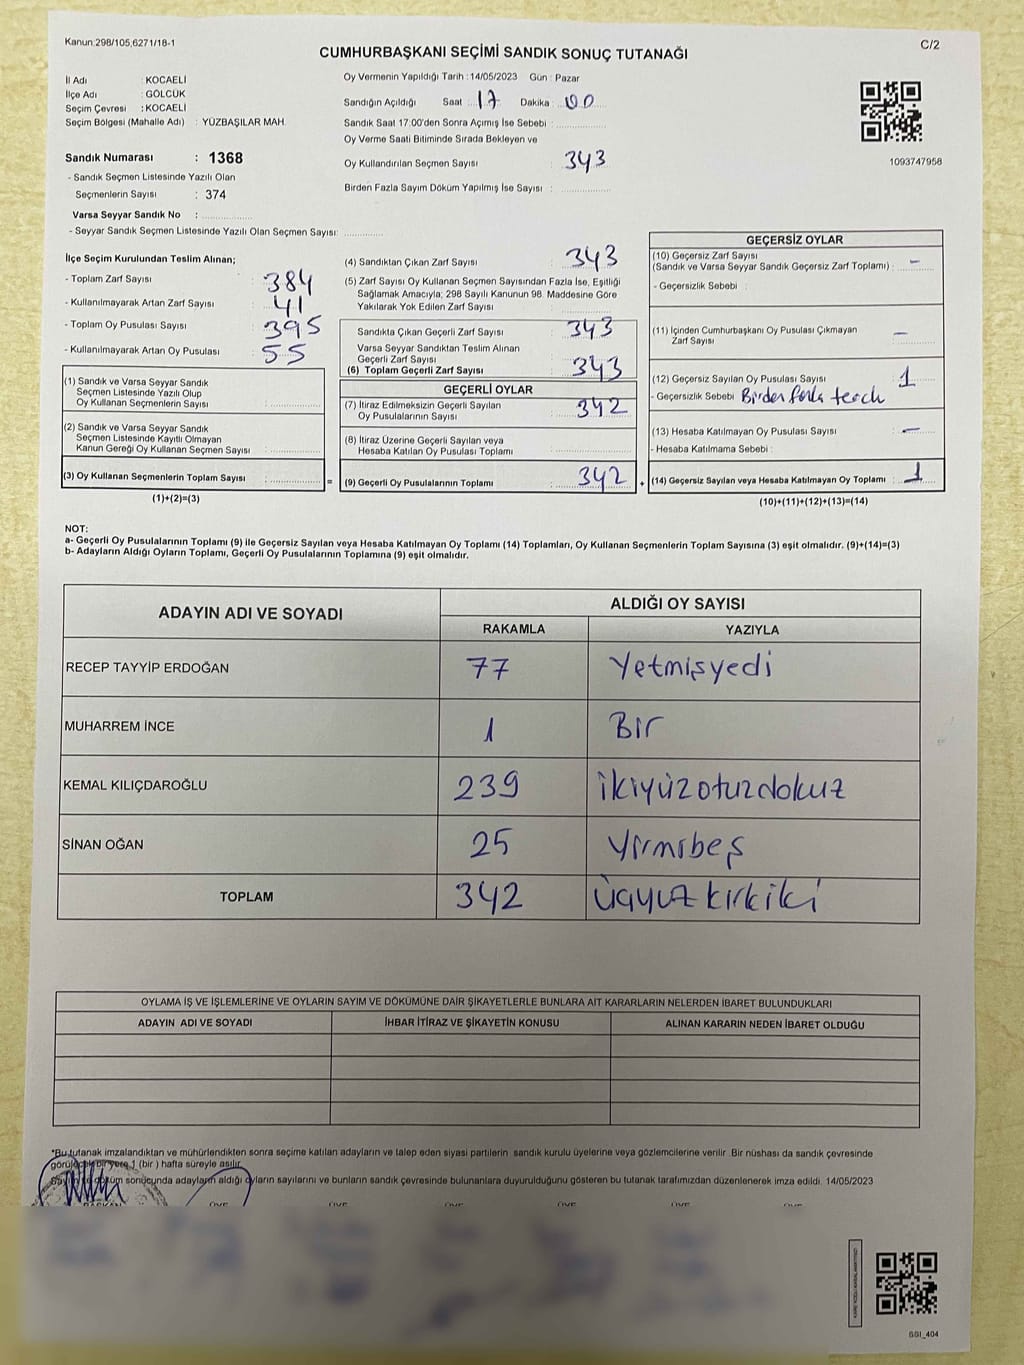 Kanun:298/105,6271/18-1
C/2
CUMHURBAŞKANI SEÇİMİ SANDIK SONUÇ TUTANAĞI
İl Adı : KOCAELİ
İlçe Adı : GÖLCÜK
Seçim Çevresi : KOCAELİ
Seçim Bölgesi (Mahalle Adı) : YÜZBAŞILAR MAH.
Sandık Numarası : 1368
- Sandık Seçmen Listesinde Yazılı Olan
Seçmenlerin Sayısı : 374
Varsa Seyyar Sandık No : ..............
- Seyyar Sandık Seçmen Listesinde Yazılı Olan Seçmen Sayısı: ............
Oy Vermenin Yapıldığı Tarih : 14/05/2023 Gün : Pazar
Sandığın Açıldığı Saat 17 Dakika 00
Sandık Saat 17:00'den Sonra Açımış İse Sebebi : ..............
Oy Verme Saati Bitiminde Sırada Bekleyen ve
Oy Kullandırılan Seçmen Sayısı : 343
Birden Fazla Sayım Döküm Yapılmış İse Sayısı : ..............
1093747958
İlçe Seçim Kurulundan Teslim Alınan;
- Toplam Zarf Sayısı : 384
- Kullanılmayarak Artan Zarf Sayısı : 41
- Toplam Oy Pusulası Sayısı : 395
- Kullanılmayarak Artan Oy Pusulası : 55
(1) Sandık ve Varsa Seyyar Sandık
Seçmen Listesinde Yazılı Olup
Oy Kullanan Seçmenlerin Sayısı : ..............
(2) Sandık ve Varsa Seyyar Sandık
Seçmen Listesinde Kayıtlı Olmayan
Kanun Gereği Oy Kullanan Seçmen Sayısı : ..............
(3) Oy Kullanan Seçmenlerin Toplam Sayısı : ..............
(1)+(2)=(3)
=
(4) Sandıktan Çıkan Zarf Sayısı : 343
(5) Zarf Sayısı Oy Kullanan Seçmen Sayısından Fazla İse, Eşitliği
Sağlamak Amacıyla; 298 Sayılı Kanunun 98. Maddesine Göre
Yakılarak Yok Edilen Zarf Sayısı : ..............
Sandıkta Çıkan Geçerli Zarf Sayısı : 343
Varsa Seyyar Sandıktan Teslim Alınan
Geçerli Zarf Sayısı
(6) Toplam Geçerli Zarf Sayısı : 343
GEÇERLİ OYLAR
(7) İtiraz Edilmeksizin Geçerli Sayılan
Oy Pusulalarının Sayısı : 342
(8) İtiraz Üzerine Geçerli Sayılan veya
Hesaba Katılan Oy Pusulası Toplamı : ..............
(9) Geçerli Oy Pusulalarının Toplamı : 342
+
GEÇERSİZ OYLAR
(10) Geçersiz Zarf Sayısı
(Sandık ve Varsa Seyyar Sandık Geçersiz Zarf Toplamı) : -
- Geçersizlik Sebebi :
(11) İçinden Cumhurbaşkanı Oy Pusulası Çıkmayan
Zarf Sayısı : -
(12) Geçersiz Sayılan Oy Pusulası Sayısı : 1
- Geçersizlik Sebebi : Birden fazla
(13) Hesaba Katılmayan Oy Pusulası Sayısı : -
- Hesaba Katılmama Sebebi :
(14) Geçersiz Sayılan veya Hesaba Katılmayan Oy Toplamı : 1
(10)+(11)+(12)+(13)=(14)
NOT:
a- Geçerli Oy Pusulalarının Toplamı (9) ile Geçersiz Sayılan veya Hesaba Katılmayan Oy Toplamı (14) Toplamları, Oy Kullanan Seçmenlerin Toplam Sayısına (3) eşit olmalıdır. (9)+(14)=(3)
b- Adayların Aldığı Oyların Toplamı, Geçerli Oy Pusulalarının Toplamına (9) eşit olmalıdır.
ADAYIN ADI VE SOYADI
ALDIĞI OY SAYISI
RAKAMLA YAZIYLA
RECEP TAYYİP ERDOĞAN 77 Yetmişyedi
MUHARREM İNCE 1 Bir
KEMAL KILIÇDAROĞLU 239 ikiyüzotuzdokuz
SİNAN OĞAN 25 Yirmibeş
TOPLAM 342 Üçyüzkırkiki
OYLAMA İŞ VE İŞLEMLERİNE VE OYLARIN SAYIM VE DÖKÜMÜNE DAİR ŞİKAYETLERLE BUNLARA AİT KARARLARIN NELERDEN İBARET BULUNDUKLARI
ADAYIN ADI VE SOYADI İHBAR İTİRAZ VE ŞİKAYETİN KONUSU ALINAN KARARIN NEDEN İBARET OLDUĞU
*Bu tutanak imzalandıktan ve mühürlendikten sonra seçime katılan adayların ve talep eden siyasi partilerin sandık kurulu üyelerine veya gözlemcilerine verilir. Bir nüshası da sandık çevresinde
görülecek bir yere 1 (bir) hafta süreyle asılır.
Sayım ve döküm sonucunda adayların aldığı oyların sayılarını ve bunların sandık çevresinde bulunanlara duyurulduğunu gösteren bu tutanak tarafımızdan düzenlenerek imza edildi. 14/05/2023
BAŞKAN ÜYE ÜYE ÜYE ÜYE ÜYE ÜYE
GGI_404